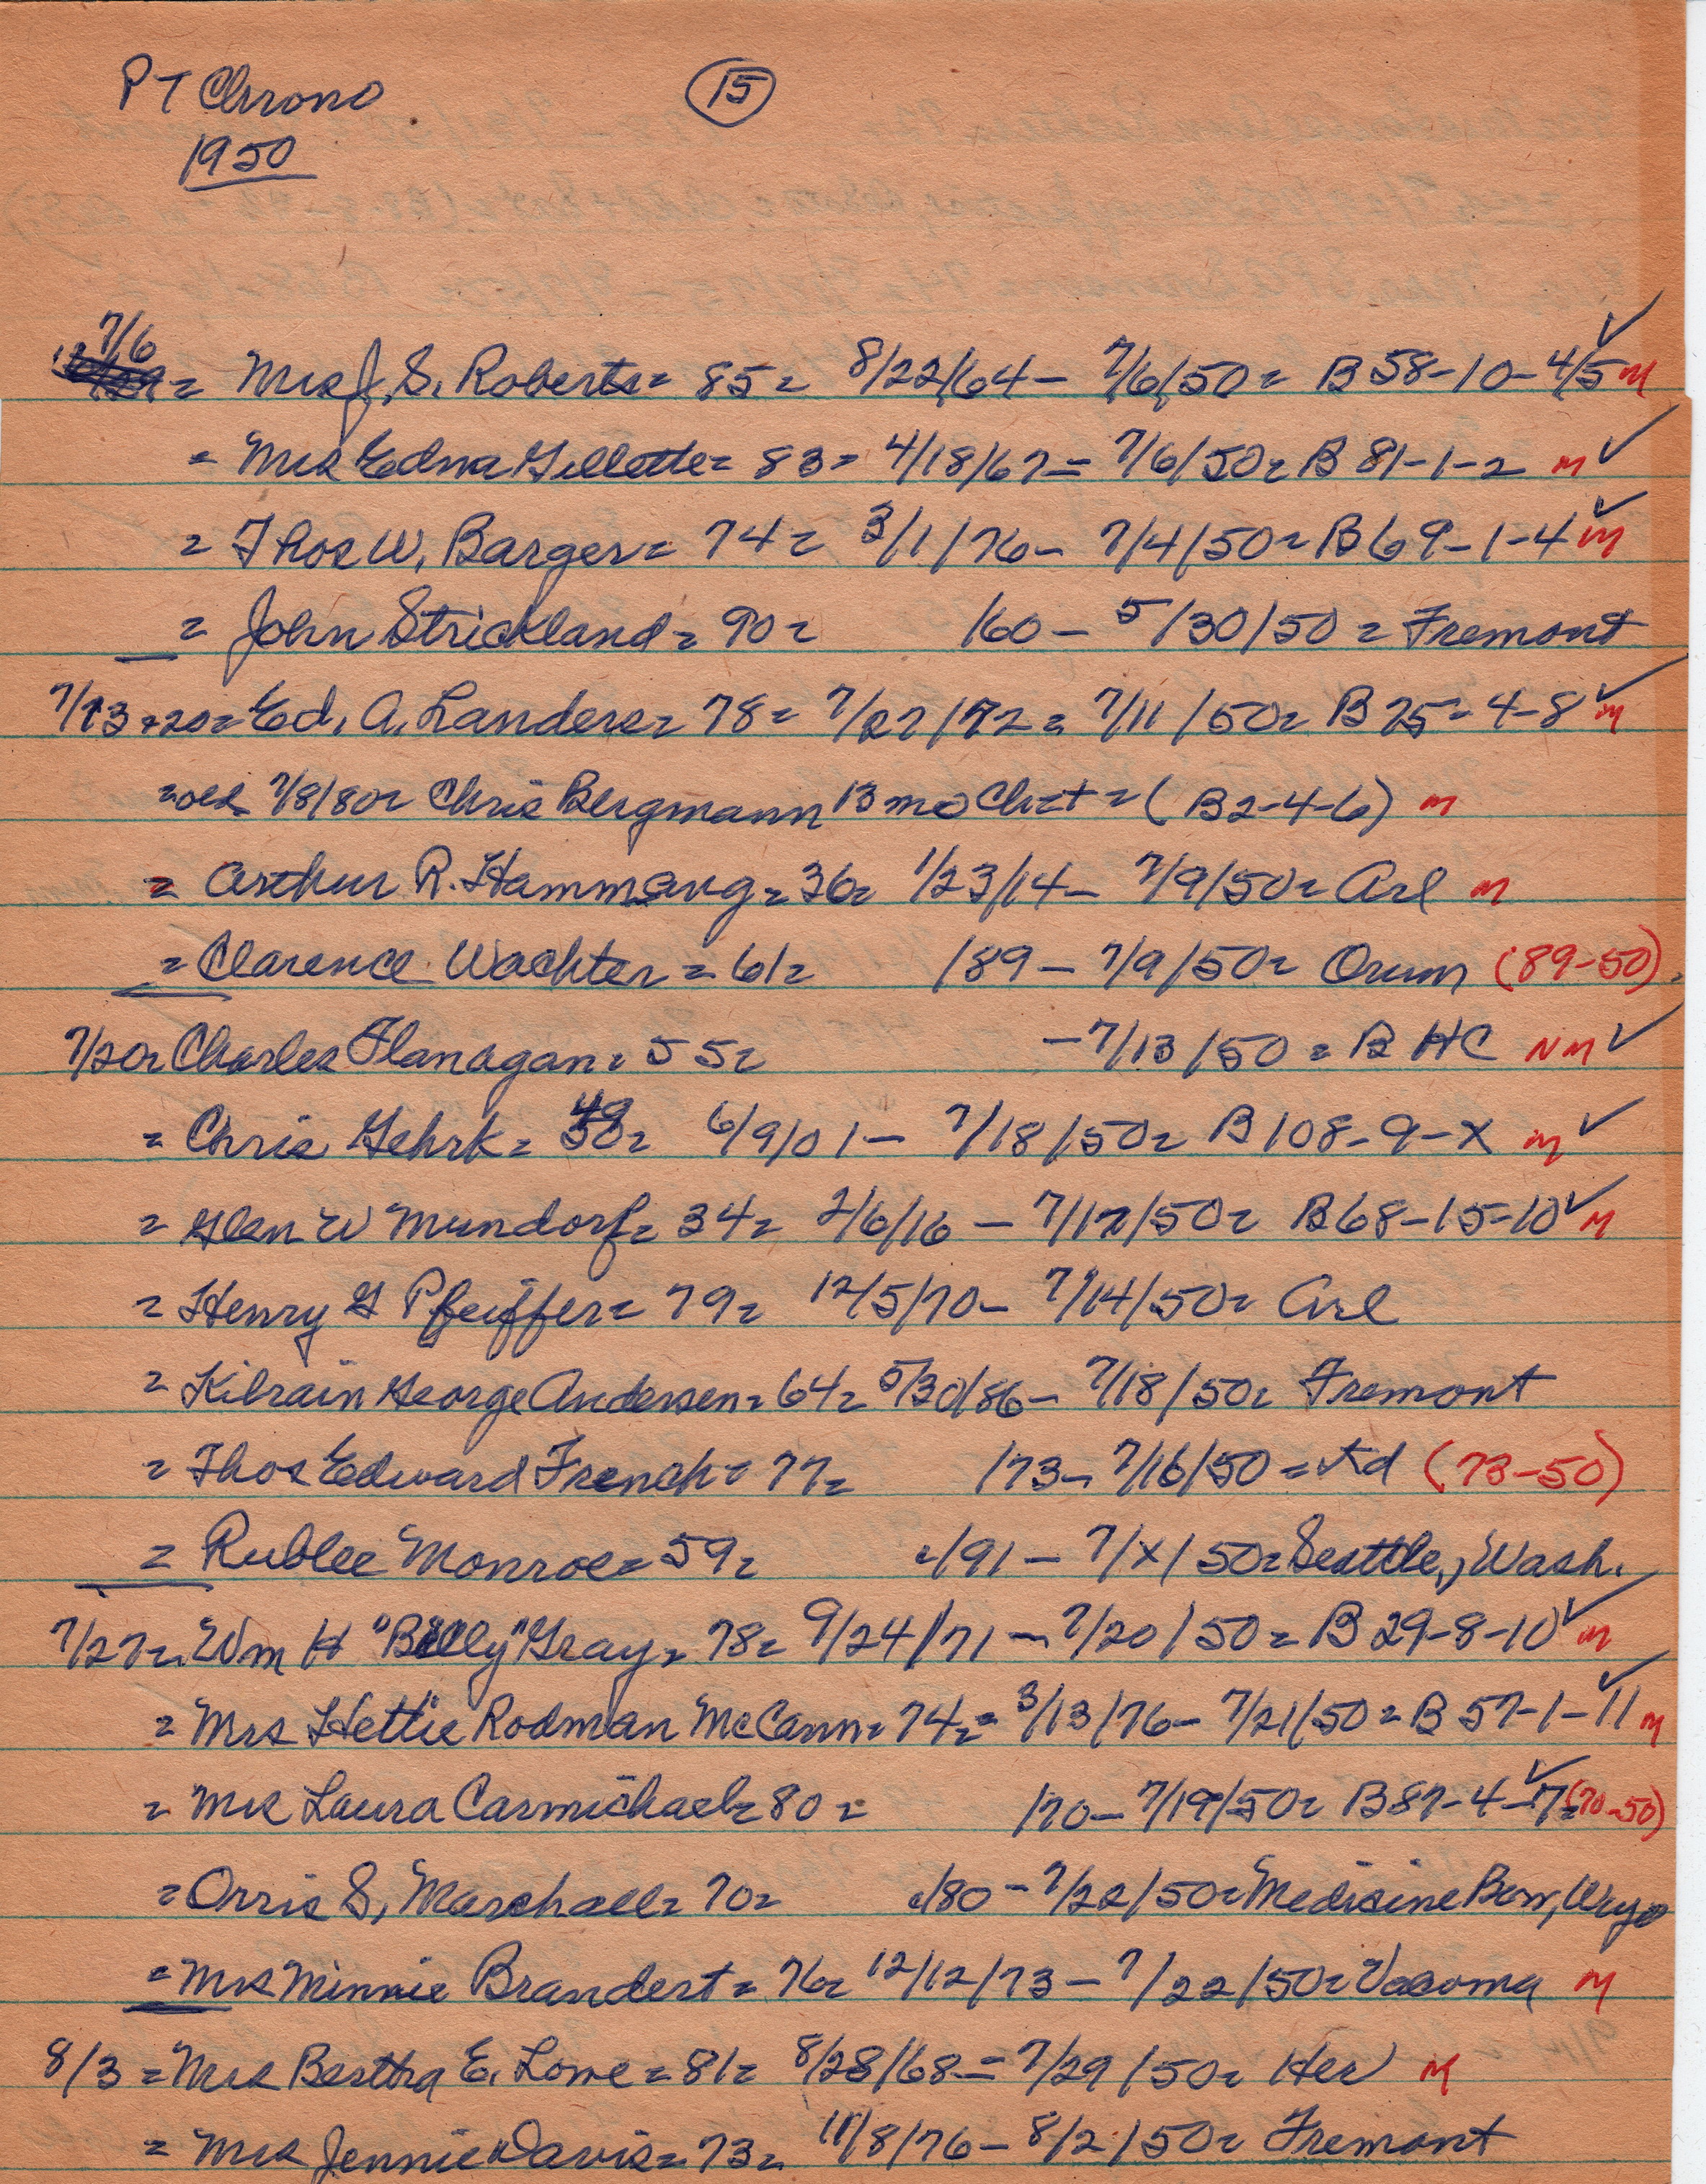 PT Chrono 15
1950
7/6 = Mrs J. S. Roberts = 85 = 8/22/64 – 7/6/50 = B 58-10-4/5 M ✓
= Mrs Edna Gillette = 83 = 4/18/67 – 7/6/50 = B 81-1-2 M ✓
= Thos W. Barger = 74 = 3/1/76 – 7/4/50 = B 69-1-4 M ✓
= John Strickland = 90 = /60 – 5/30/50 = Fremont
7/13+20 = Ed. A. Landers = 78 = 7/27/72 = 7/11/50 = B 25-4-8 M ✓
= 7/8/80 = Chris Bergmann 13 mo = (B2-4-6) M
= Arthur R. Hammang = 36 = 1/23/14 – 7/9/50 = Arl M
= Clarence Wachter = 61 = /89 – 7/9/50 = Orum (89-50)
7/20 = Charles Flanagan = 55 = – 7/13/50 = B HC NM ✓
= Chris Gehrk = 49 = 6/9/01 – 7/18/50 = B 108-9-X M ✓
= Glen W Mundorf = 34 = 2/6/16 – 7/17/50 = B 68-15-10 M ✓
= Henry G Pfeiffer = 79 = 12/5/70 – 7/14/50 = Arl
= Kilrain George Andersen = 64 = 5/30/86 – 7/18/50 = Fremont
= Thos Edward French = 77 = /73 – 7/16/50 = Kd (73-50)
= Rublee Monroe = 59 = c/91 – 7/X/50 = Seattle, Wash.
7/27 = Wm H "Billy" Gray = 78 = 9/24/71 – 7/20/50 = B 29-8-10 M ✓
= Mrs Hettie Rodman McCann = 74 = 3/13/76 – 7/21/50 = B 57-1-11 M ✓
= Mrs Laura Carmichael = 80 = /70 – 7/19/50 = B 87-4-7 = (70-50) ✓
= Orris S. Marshall = 70 = c/80 – 7/22/50 = Medicine Bow, Wyo
= Mrs Minnie Brandert = 76 = 12/12/73 – 7/22/50 = Vacoma M
8/3 = Mrs Bertha E. Lowe = 81 = 8/28/68 – 7/29/50 = Her M
= Mrs Jennie Davis = 73 = 11/8/76 – 8/2/50 = Fremont